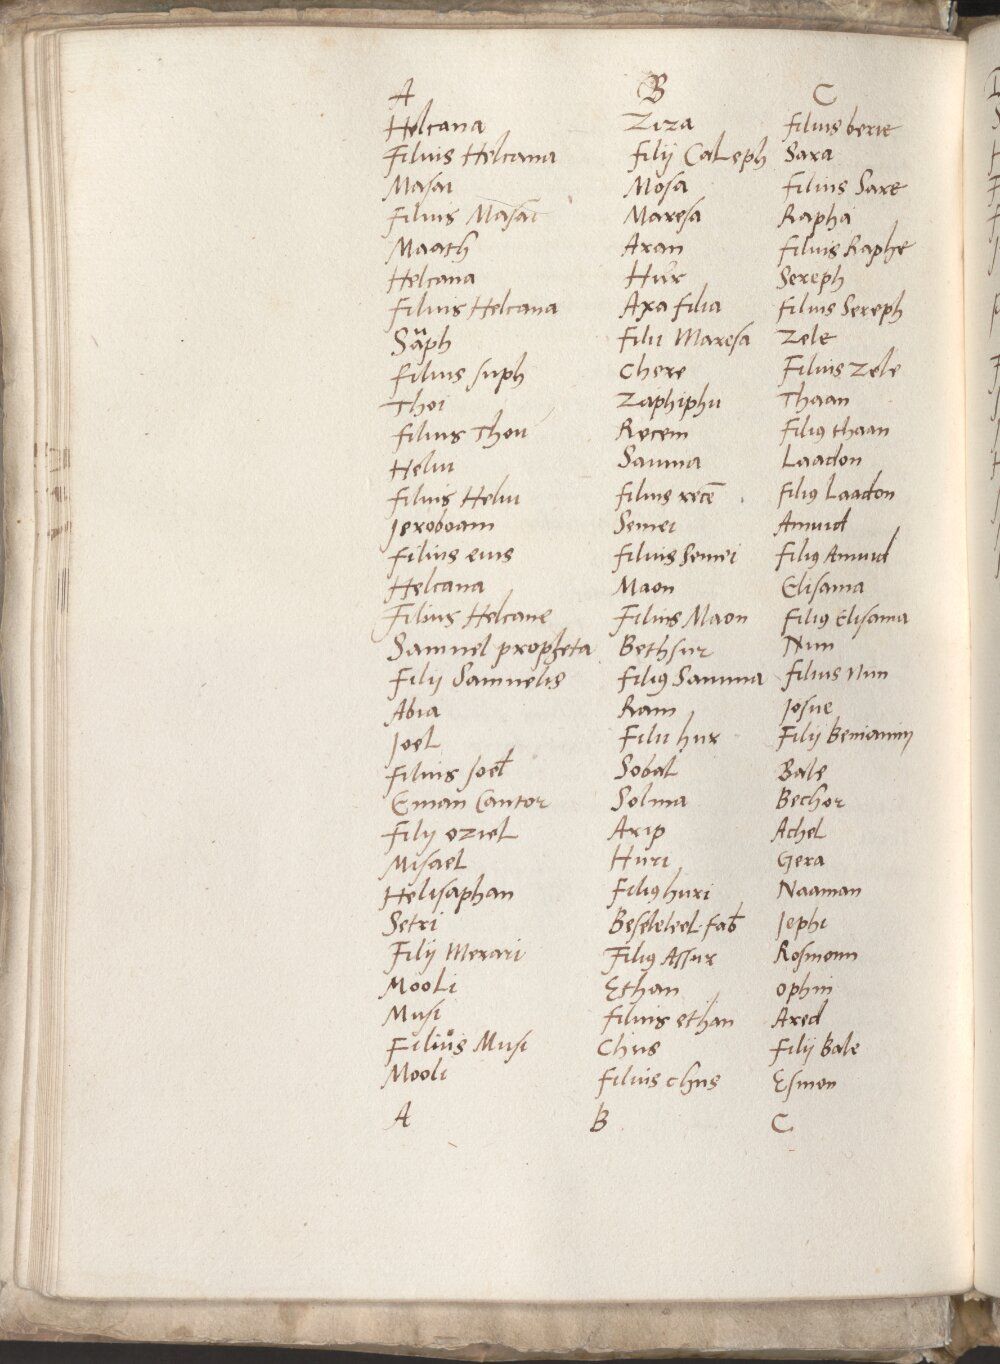 A
Helcana
Filius Helcana
Masai
Filius Masai
Maath
Helcana
Filius Helcana
Säph
filius suph
Thoi
filius Thou
Heliu
Filius Heliu
Jeroboam
Filius eius
Helcana
Filius Helcane
Samuel propheta
Filij Samuelis
Abia
Joel
Filius Joel
Eman Cantor
Filij oziel
Misael
Helisaphan
Setri
Filij Merari
Mooli
Musi
Filius Musi
Mooli
A
B
Ziza
filij Caleph
Mosa
Maresa
Aran
Hur
Axa filia
Filii Maresa
Chere
Zaphiphu
Recem
Samma
filius recē
Semei
filius Semei
Maon
Filius Maon
Bethsur
filiꝯ Samma
Ram
Filii hur
Sobal
Solma
Arip
Huri
Filiꝯ huri
Beseleleel fab
Filiꝯ Assur
Ethan
filius ethan
Chus
Filius chus
B
C
filius berie
Sara
filius Sare
Rapha
filius Raphe
Sereph
filius Sereph
Zele
Filius Zele
Thaan
Filiꝯ thaan
Laadon
filiꝯ Laadon
Amuid
filiꝯ Amuid
Elisama
filiꝯ Elisama
Nun
filius Nun
Josue
Filij Beniamin
Bale
Bechor
Achel
Gera
Naaman
Jephi
Rosmom
ophin
Ared
Filij Bale
Esmon
C